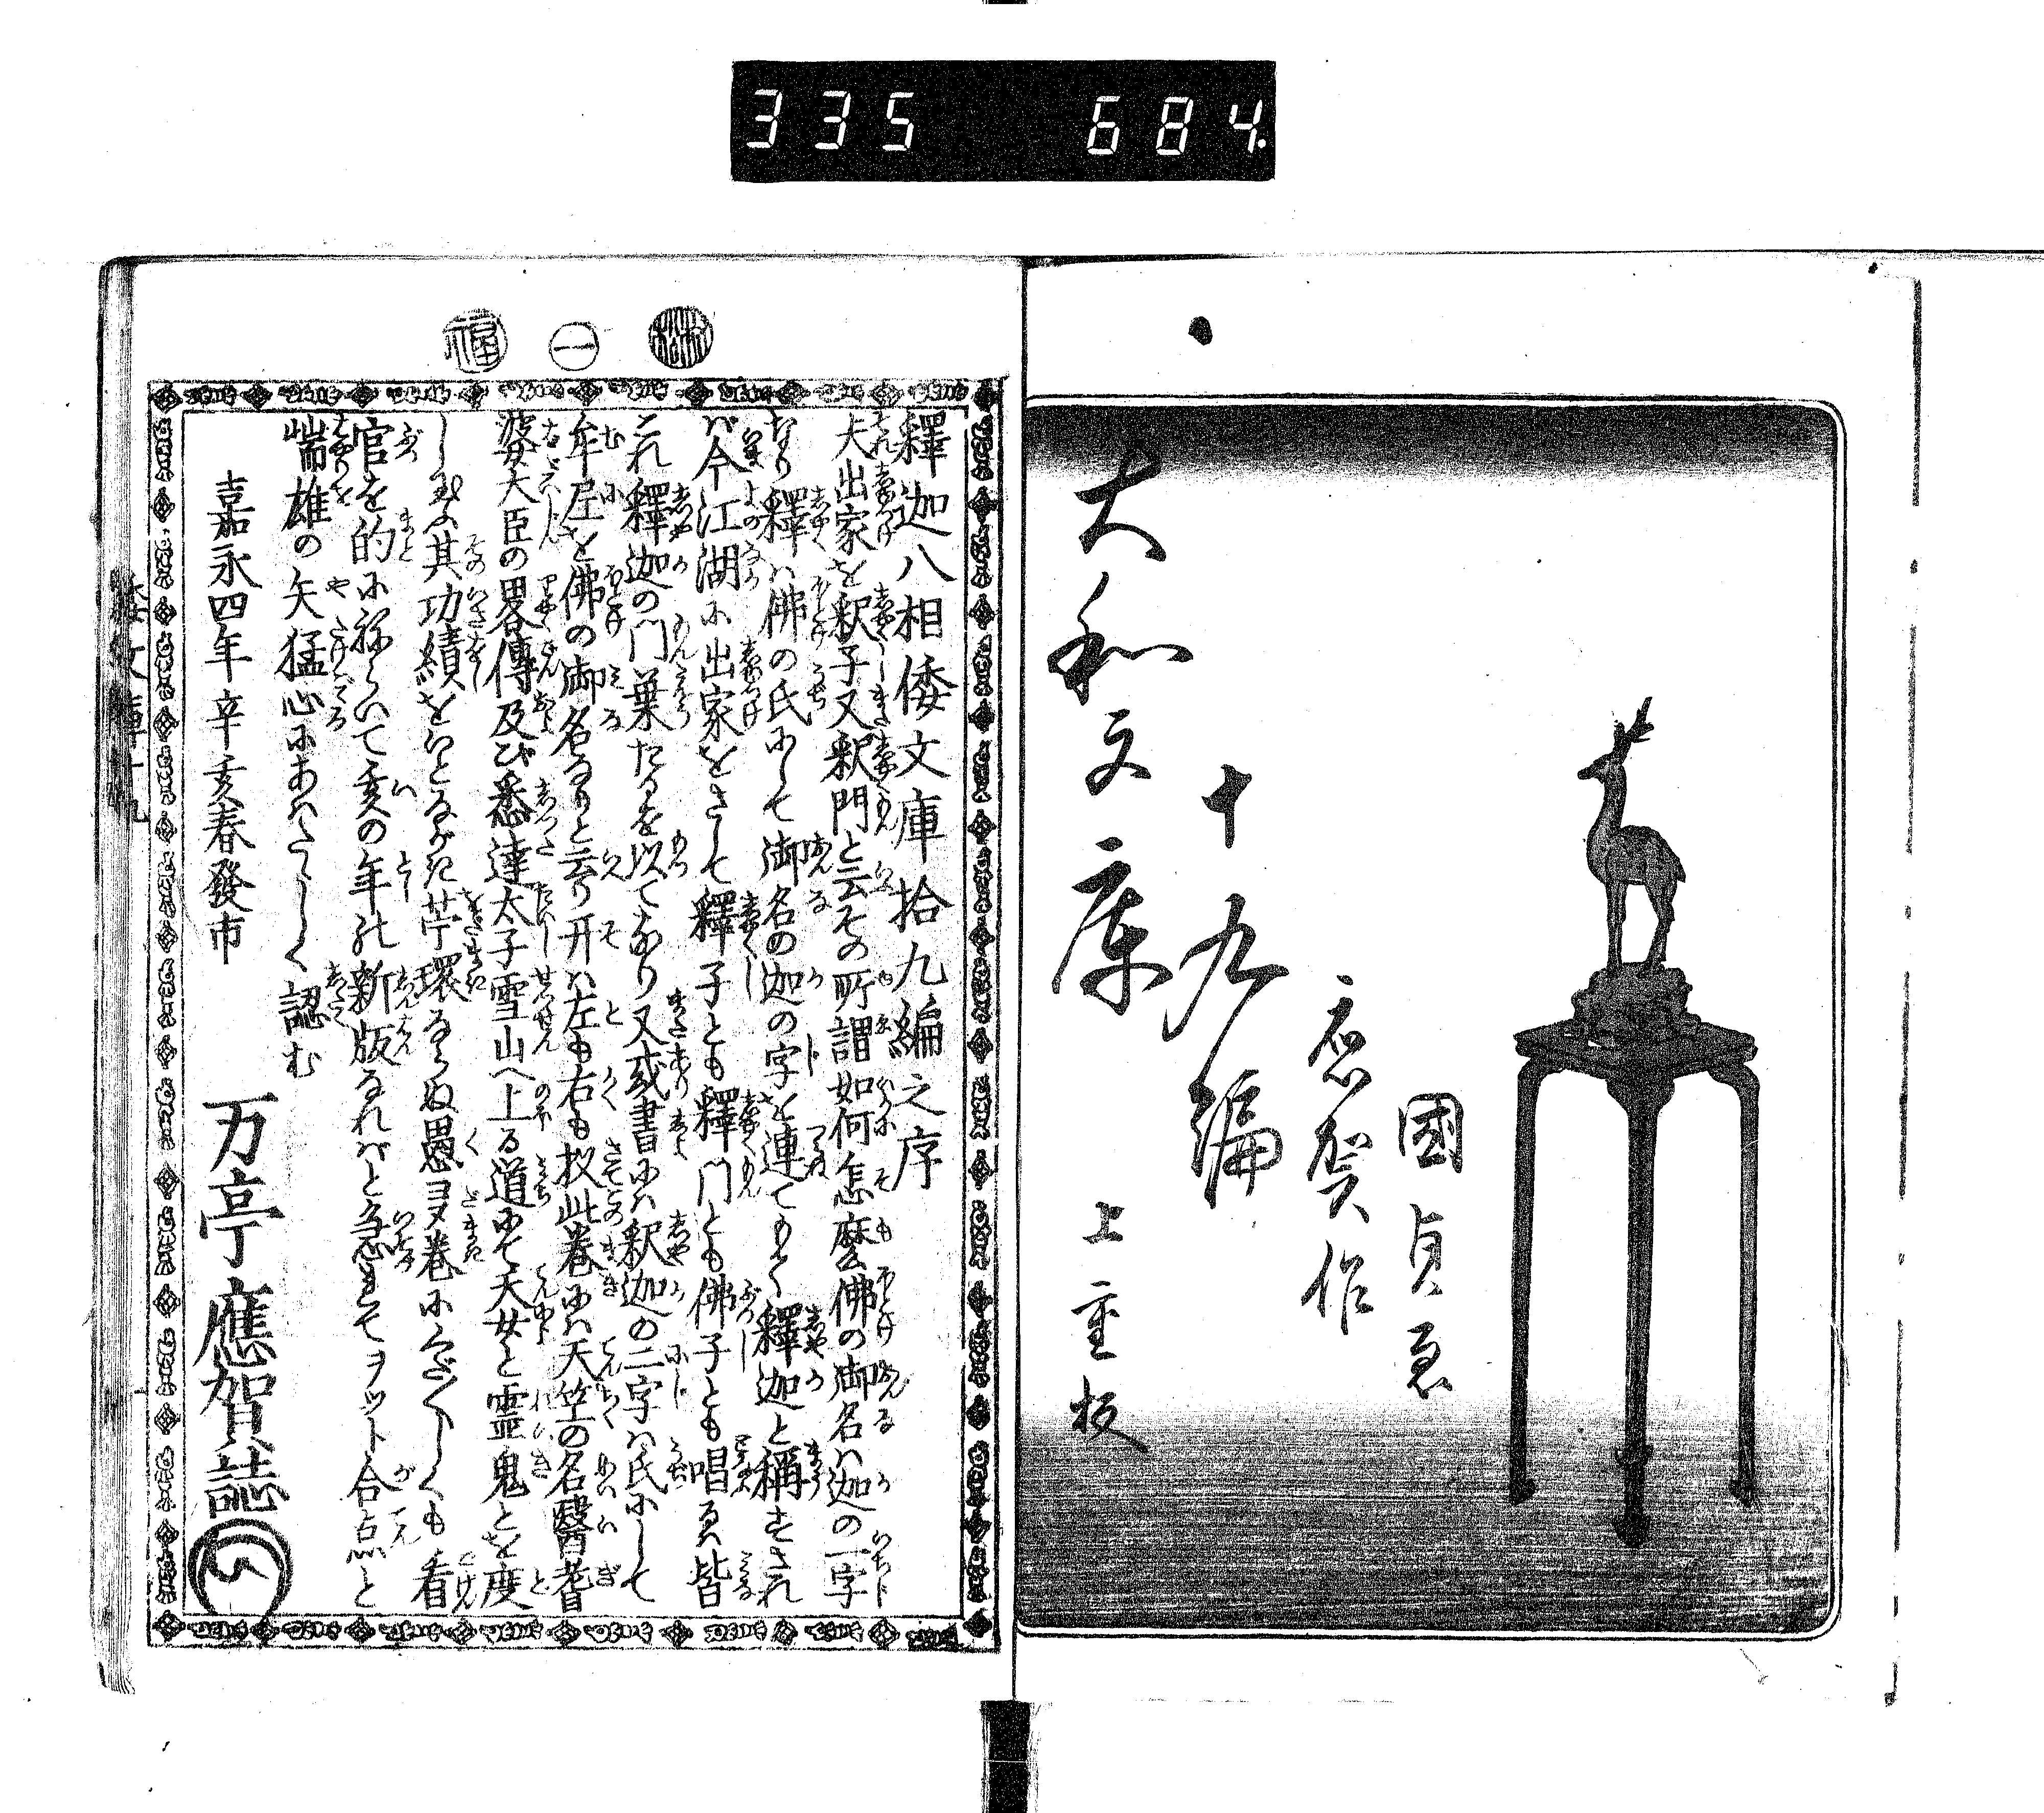 335 684.
大和文庫
十九編
上重板
應賀作
國貞画
一
福
釋迦八相倭文庫拾九編之序
夫出家を釈子又釈門と云その所謂如何怎麼佛の御名ハ迦の一字
なり釋ハ佛の氏にして御名の迦の字を連てもて釋迦と稱せされ
バ今江湖に出家をさして釋子とも釋門とも佛子とも唱るハ皆
これ釋迦の門葉たるを以てなり又或書にハ釈迦の二字ハ氏にして
牟尼を佛の御名なりと云り开ハ左も右も扨此巻にハ天竺の名醫耆
婆大臣の畧傳及び悉達太子雪山へ上る道にて天女と霊鬼とを度
し玉ふ其功績をいとなが〻苧環ならぬ愚ヌ巻にくだ〱しくも看
官を的にねらいて亥の年の新版なれバと急ぎもてヲット合点と
喘雄の矢猛心にあハたゝしく認む
嘉永四年辛亥春發市
万亭應賀誌